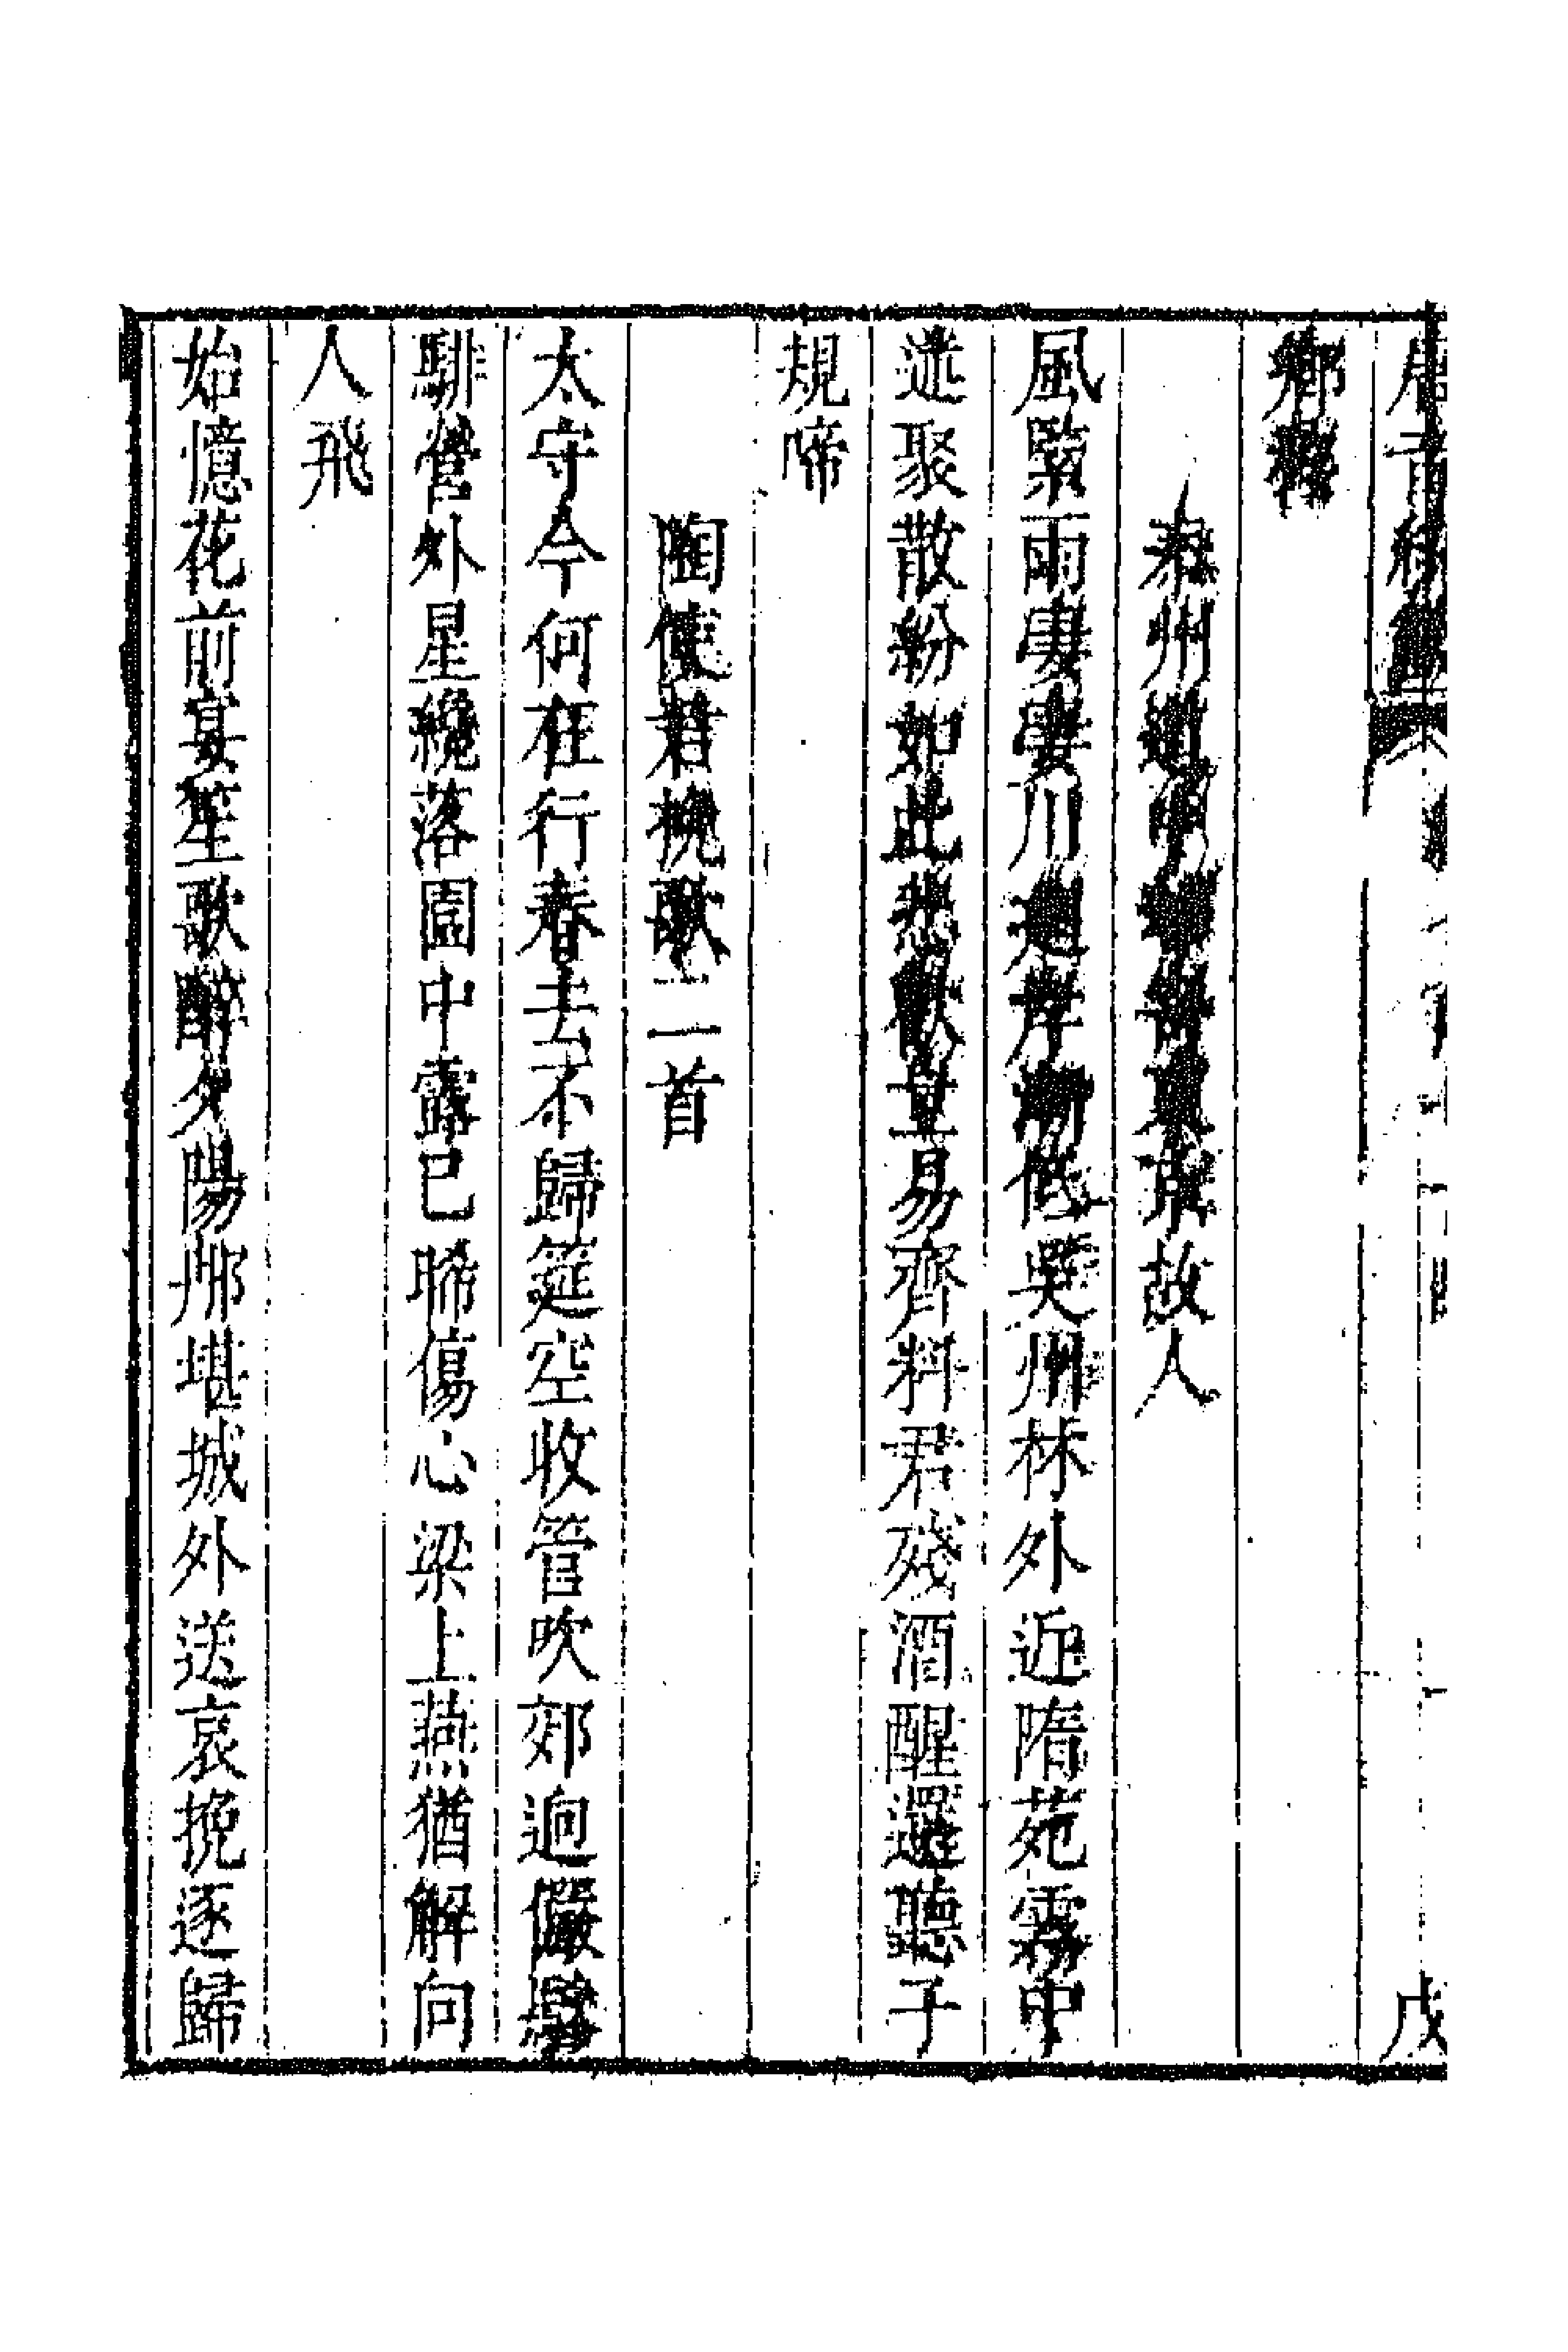 唐音統籤 戊
鄉
泰州道中却寄東京故人
風緊雨凄凄川迴岸漸低吳州林外近隋苑霧中
迷聚散紛如此悲歡豈易齊料君殘酒醒還聽子
規啼
陶使君挽歌二首
太守今何在行春去不歸筵空收管吹郊迥儼驂
騑營外星纔落園中露已晞傷心梁上燕猶解向
人飛
始憶花前宴笙歌醉夕陽那堪城外送哀挽逐歸